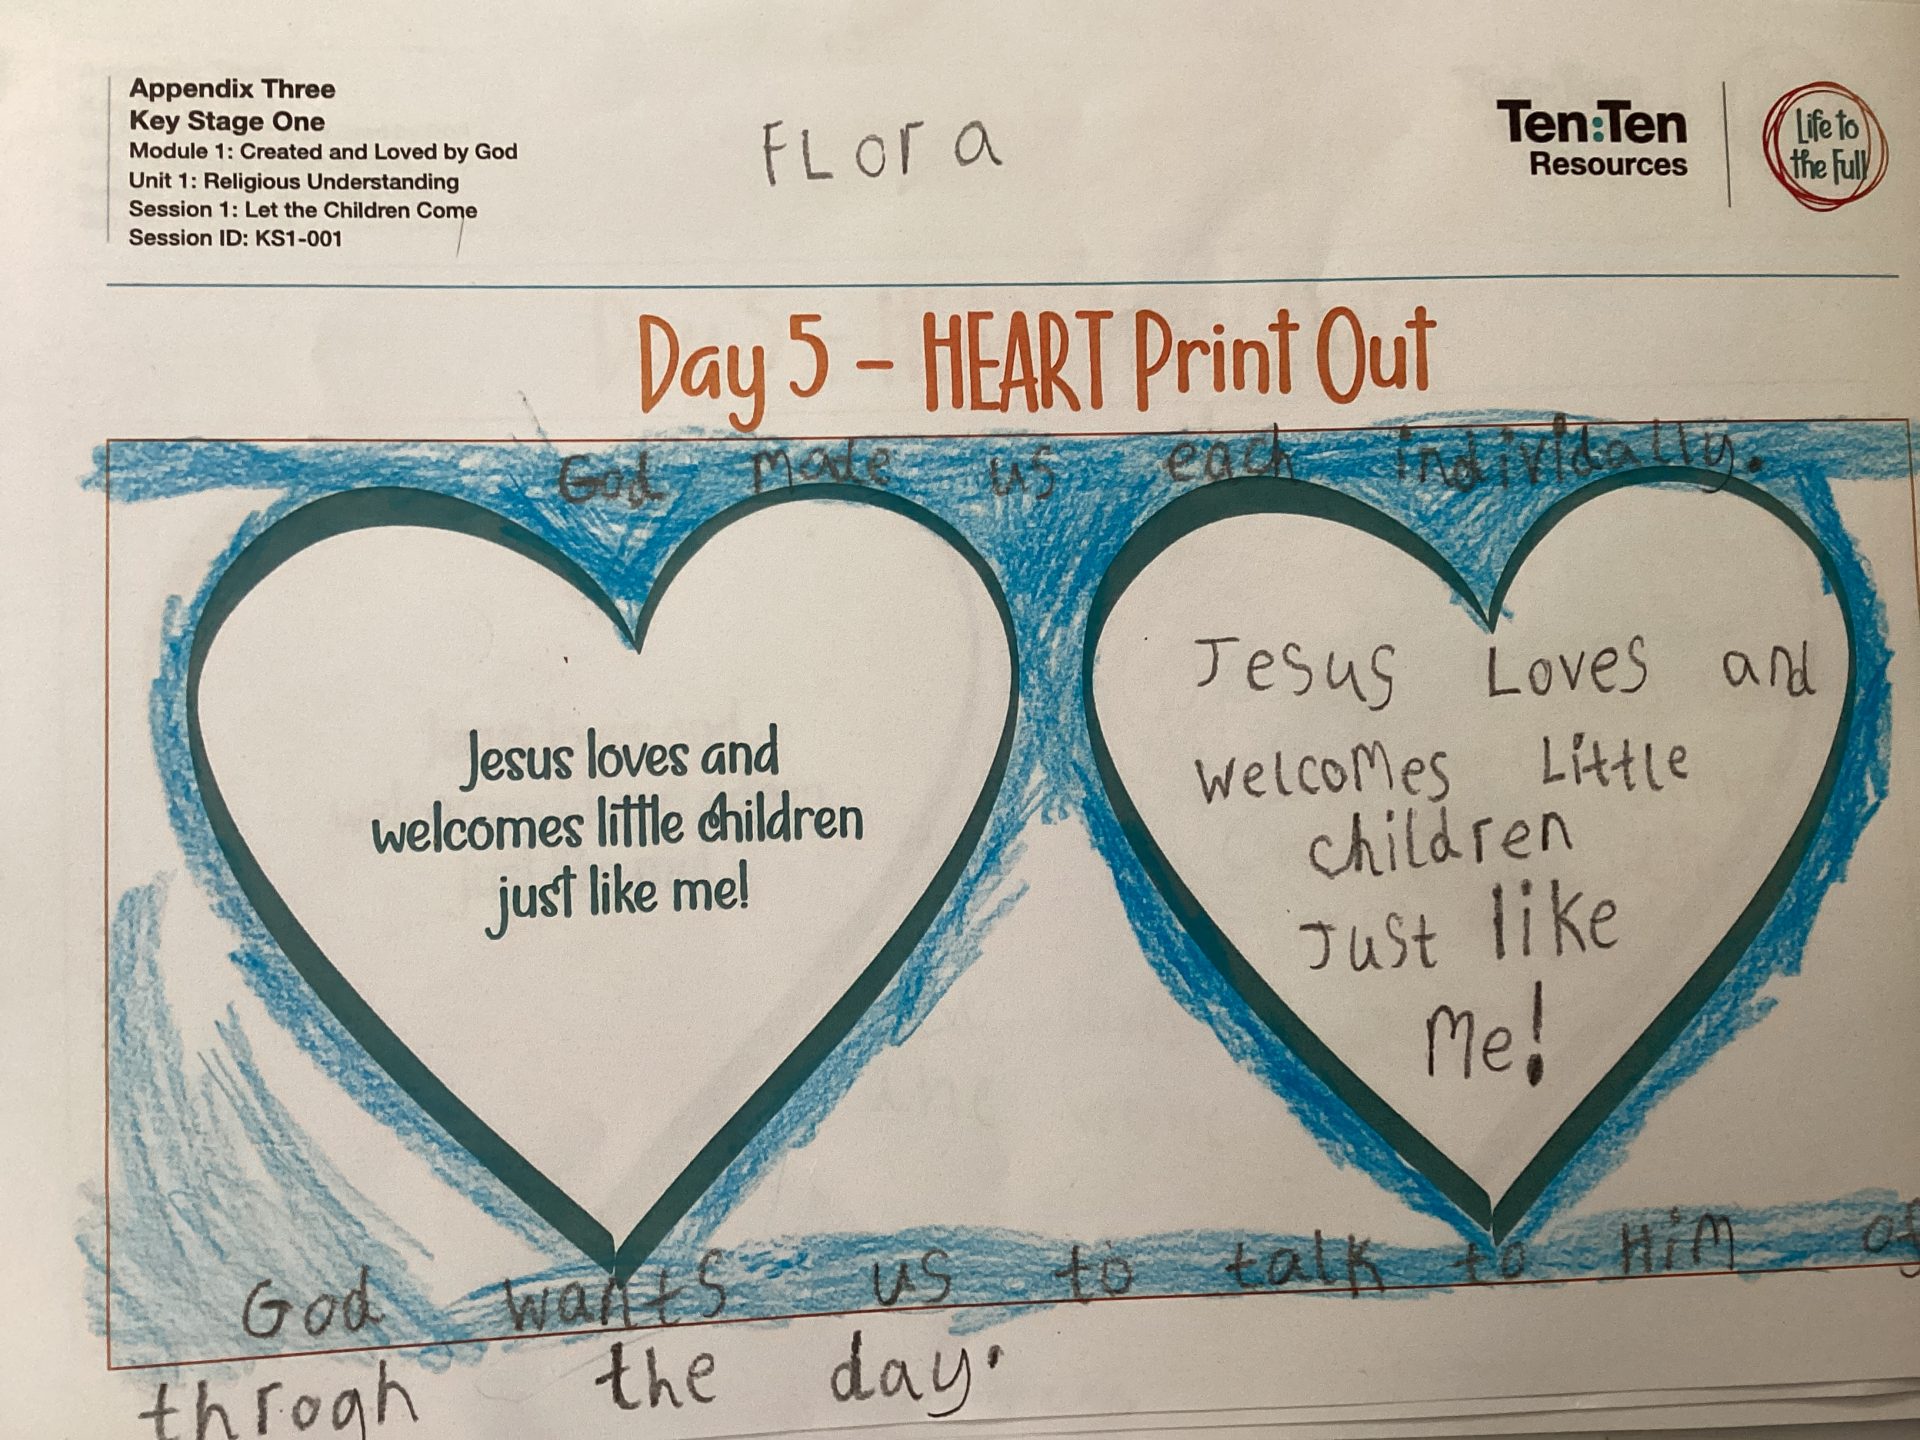 Appendix Three
Key Stage One
Module 1: Created and Loved by God
Unit 1: Religious Understanding
Session 1: Let the Children Come
Session ID: KS1-001
FLora
Ten:Ten
Resources
Life to
the Full
Day 5 - HEART Print Out
God made us each individally.
Jesus loves and
welcomes little children
just like me!
Jesus Loves and
welcoMes Little
children
Just like
Me!
God wants us to talk to HiM
throgh the day.